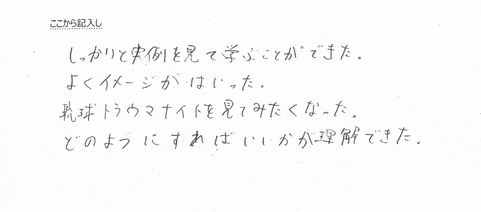 ここから記入し
しっかりと実例を見て学ぶことができた。
よくイメージがはいった。
琉球トラウマナイトを見てみたくなった。
どのようにすればいいかが理解できた。